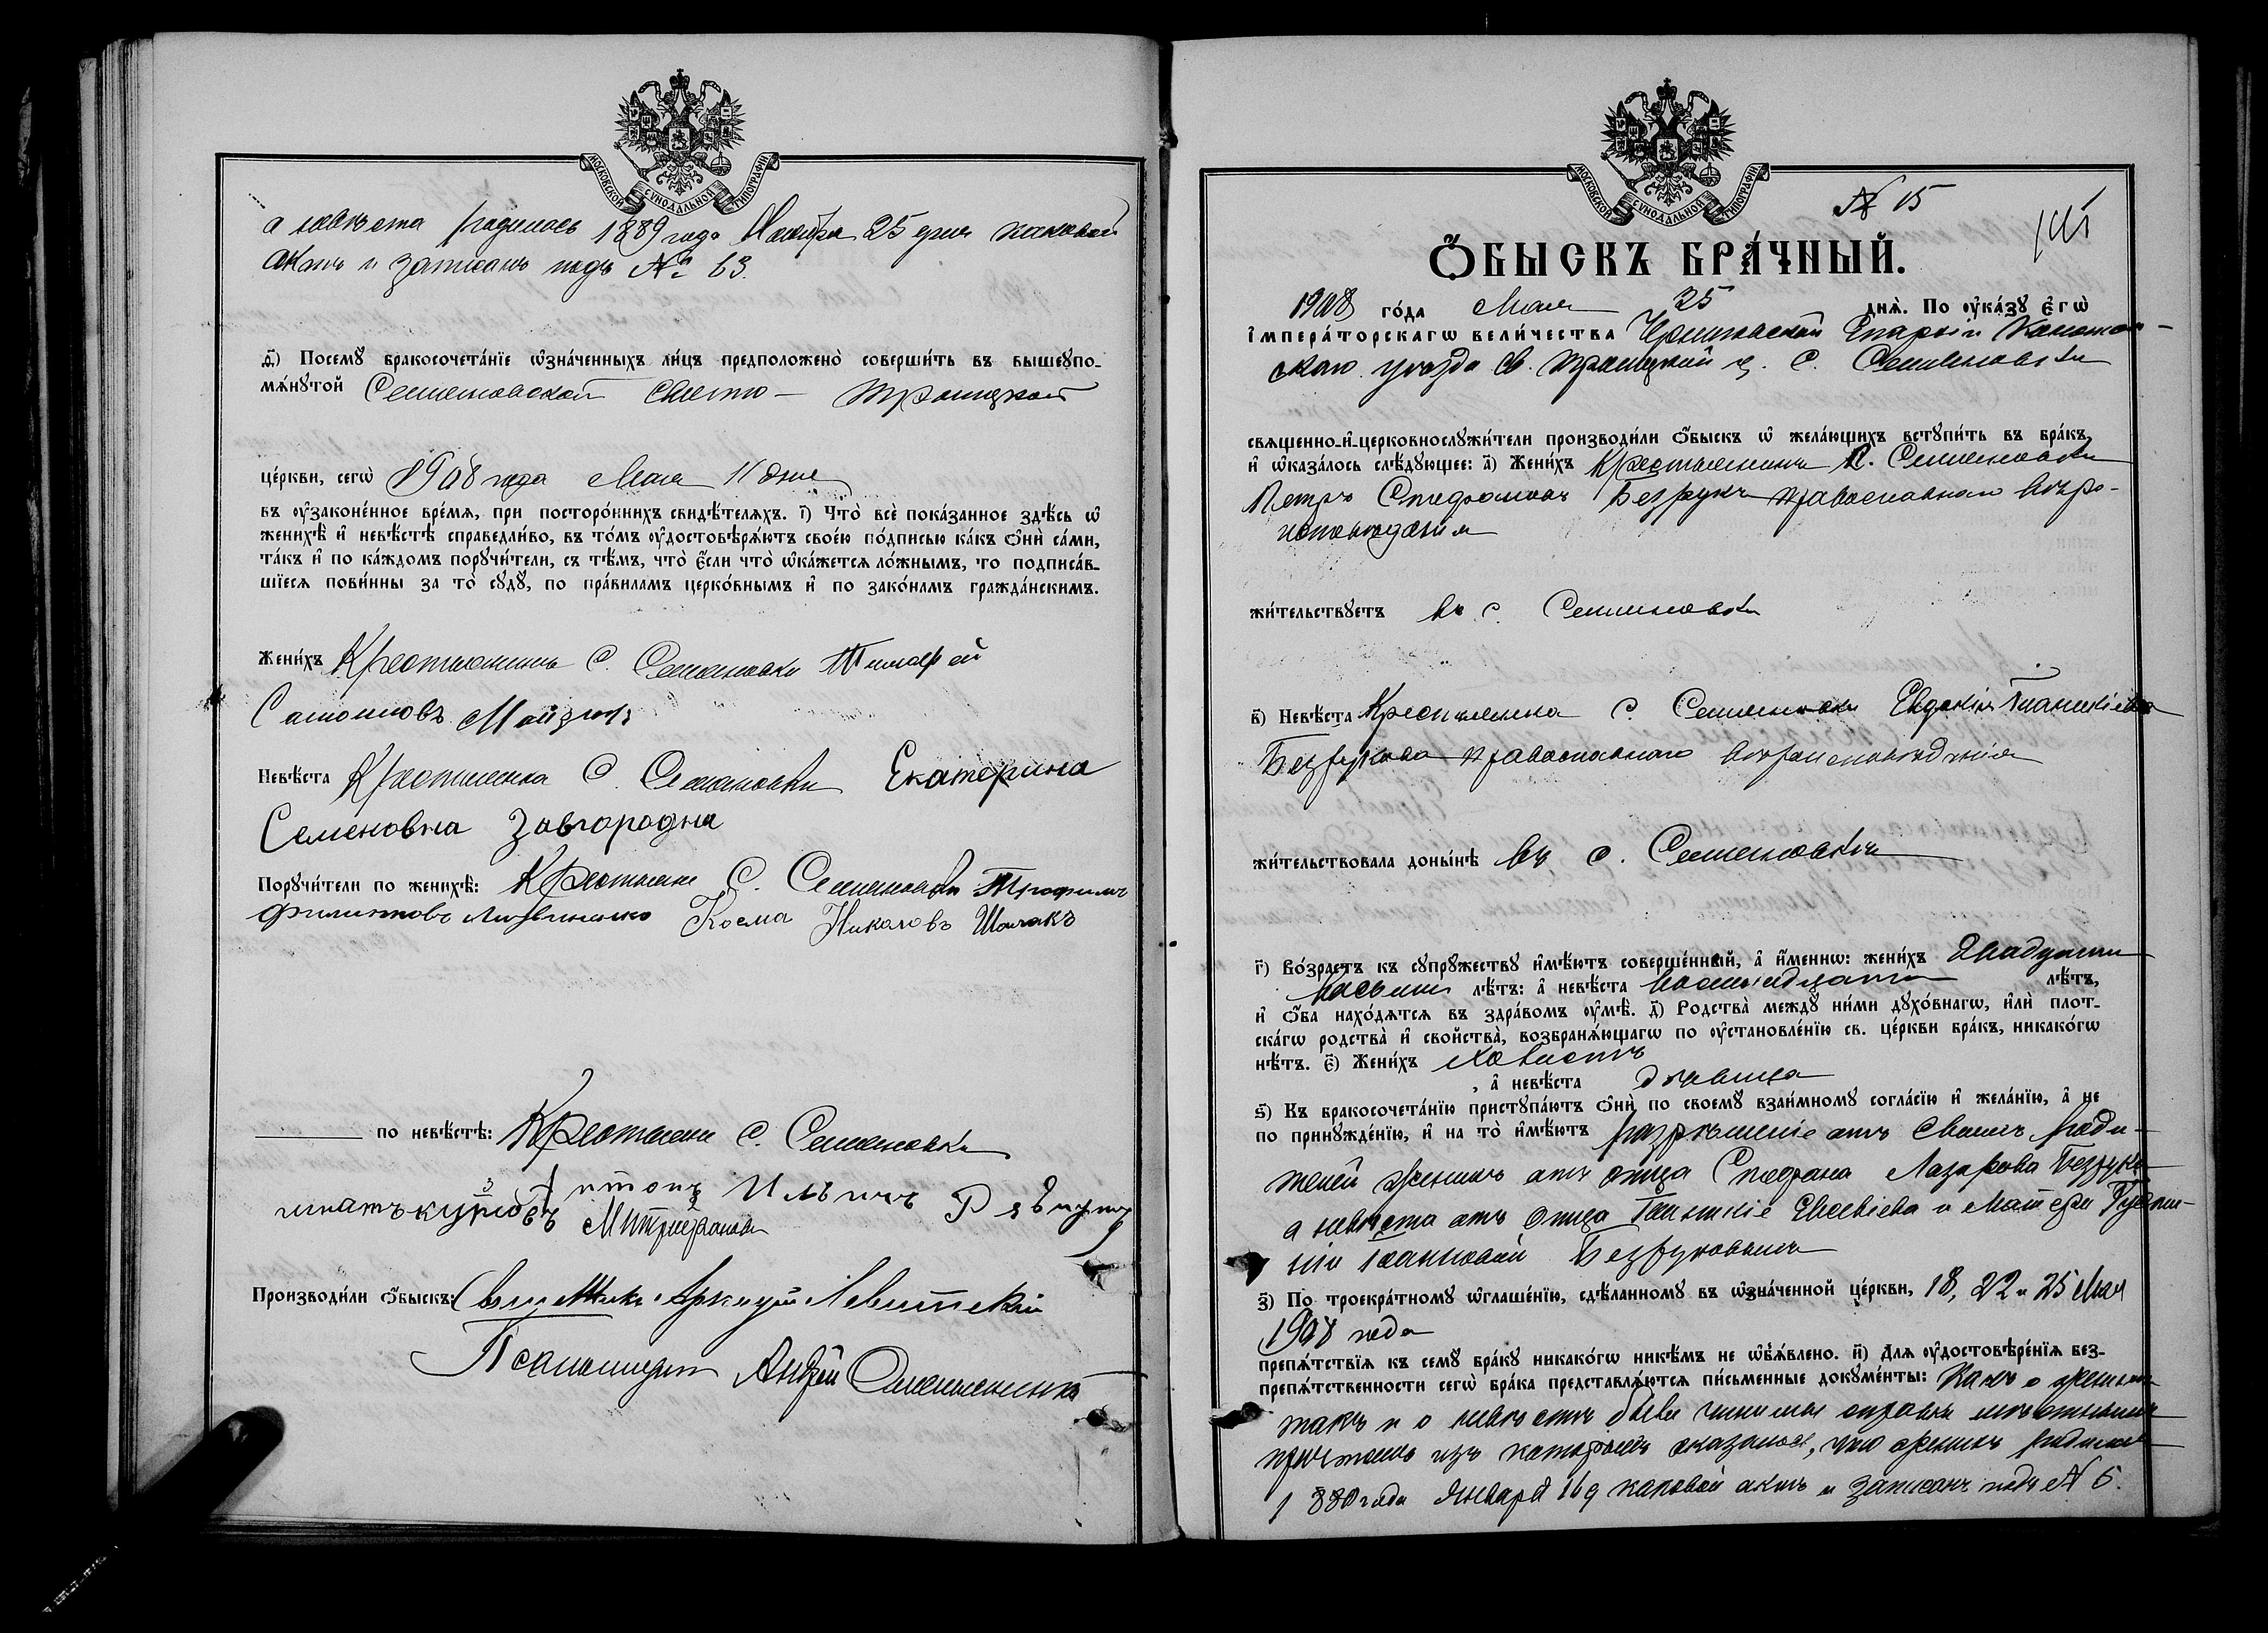 МОСКОВСКОЙ СѴНОДАЛЬНОЙ ТИПОГРАФІИ
а невѣста родилась 1889 года Ноября 25 дня каковой
актъ и записанъ подъ № 63.
д҃) Посемꙋ бракосочета́нїе ѡзна́ченныхъ ли́цъ предположено̀ соверши́ть въ вышеꙋпо-
мѧ́нꙋтой Семеновской Свято - Троицкой
це́ркви, сегѡ̀ 1908 года Мая 11 дня
въ ѹ҆зако́ненное вре́мѧ, при посторо́ннихъ свидѣ́телѧхъ. і҃) Что̀ всѐ пока́занное здѣ́сь ѡ҆
женихѣ̀ и҆ невѣ́стѣ справедли́во, въ то́мъ ѹ҆достовѣрѧ́ютъ свое́ю по́дписью ка́къ ѻ҆нѝ са́ми,
та́къ и҆ по ка́ждомъ порꙋчи́тели, съ тѣ́мъ, что̀ є҆́сли что̀ ѡ҆ка́жетсѧ ло́жнымъ, то подписа́в-
шїесѧ пови́нны за то̀ сꙋдꙋ̀, по пра́виламъ церко́внымъ и҆ по зако́намъ гражда́нскимъ.
Жени́хъ Крестьянинъ С. Семеновки Тимофей
Самоиловъ
Невѣ́ста Крестьянка С. Семеновки Екатерина
Семеновна Завгородна
Порꙋчи́тели по женихѣ̀: Крестьяне С. Семеновки Трофимъ
Филиповъ Литвиненко Косма Николовъ
по невѣ́стѣ: Крестьяне С. Семеновки
Митрофановъ
Производи́ли ѻ҆́быскъ: Левитскій
Псаломщикъ Андрей
МОСКОВСКОЙ СѴНОДАЛЬНОЙ ТИПОГРАФІИ
№ 15
Ѻ҆́БЫСКЪ БРА́ЧНЫЙ.
1908 го́да Мая 25 днѧ̀. По ѹ҆ка́зꙋ є҆гѡ̀
і҆мпера́торскагѡ вели́чества Черниговской Епархіи Конотоп-
скаго уѣзда Св. Троицкой ц. С. Семеновки
свѧще́нно-и҆-церковнослꙋжи́тели производи́ли ѻ҆́быскъ ѡ҆ жела́ющихъ встꙋпи́ть въ бра́къ,
и҆ ѡ҆каза́лось слѣ́дꙋющее: а҃) Жени́хъ Крестьянинъ С. Семеновки
Петръ Стефановъ Безрукъ православнаго вѣро-
исповѣданія
жи́тельствꙋетъ въ с. Семеновки
в҃) Невѣ́ста Крестьянка С. Семеновки Евдокія
Безрукова православнаго вѣроисповѣданія
жи́тельствовала доны́нѣ въ с. Семеновкѣ
г҃) Во́зрастъ къ сꙋпрꙋжествꙋ и҆мѣ́ютъ соверше́нный, а҆ и҆́меннѡ: жени́хъ двадцати
восьми лѣ́тъ: а҆ невѣ́ста восьмнадцати лѣ́тъ,
и҆ ѻ҆́ба нахо́дѧтсѧ въ здра́вомъ ѹ҆мѣ̀. д҃) Родства̀ междꙋ ни́ми дꙋхо́внагѡ, и҆лѝ плот-
ска́гѡ родства̀ и҆ свойства̀, возбранѧ́ющагѡ по ѹ҆становле́нїю св. це́ркви бра́къ, никако́гѡ
нѣ́тъ. є҃) Жени́хъ холостъ
, а҆ невѣ́ста дѣвица
ѕ҃) Къ бракосочета́нїю пристꙋпа́ютъ ѻ҆нѝ по своемꙋ̀ взаи́мномꙋ согла́сїю и҆ жела́нїю, а҆ не
по принꙋжде́нїю, и҆ на то̀ и҆мѣ́ютъ разрѣшеніе отъ своихъ роди-
телей женихъ отъ отца Стефана Лазарова Безрука
а невѣста отъ отца Евсевіева и матери
Іоанновой Безруковыхъ
з҃) По троекра́тномꙋ ѡ҆глаше́нїю, сдѣ́ланномꙋ въ ѡ҆зна́ченной це́ркви, 18, 22 и 25 Мая
1908 года
препѧ́тствїѧ къ семꙋ̀ бра́кꙋ никако́гѡ никѣ́мъ не ѡ҆б̾ѧ́влено. и҃) Длѧ ѹ҆достовѣре́нїѧ без-
препѧ́тственности сегѡ̀ бра́ка представлѧ́ютсѧ пи́сьменные докꙋме́нты: Какъ о женихѣ
такъ и о невѣстѣ были чинимы справки мѣстнымъ
причтомъ изъ которыхъ оказалось, что женихъ родился
1880 года Января 16 д каковой актъ и записанъ подъ № 6.